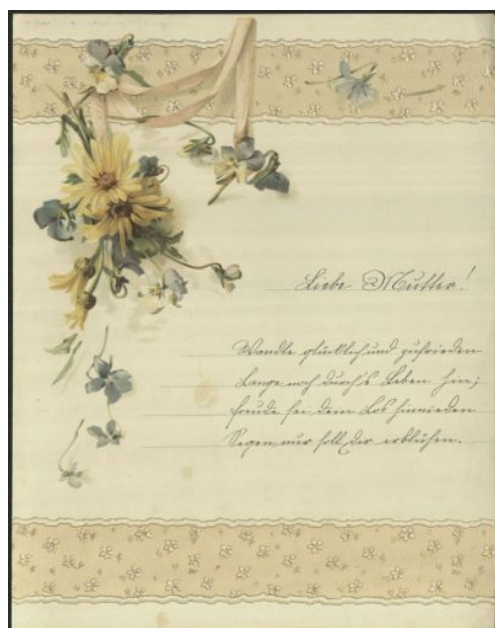 Liebe Mutter!
Wandle glücklich und zufrieden
Lange noch durch's Leben hin;
Freude sei dein Los hinnieden
Segen nur soll dir erblühen.